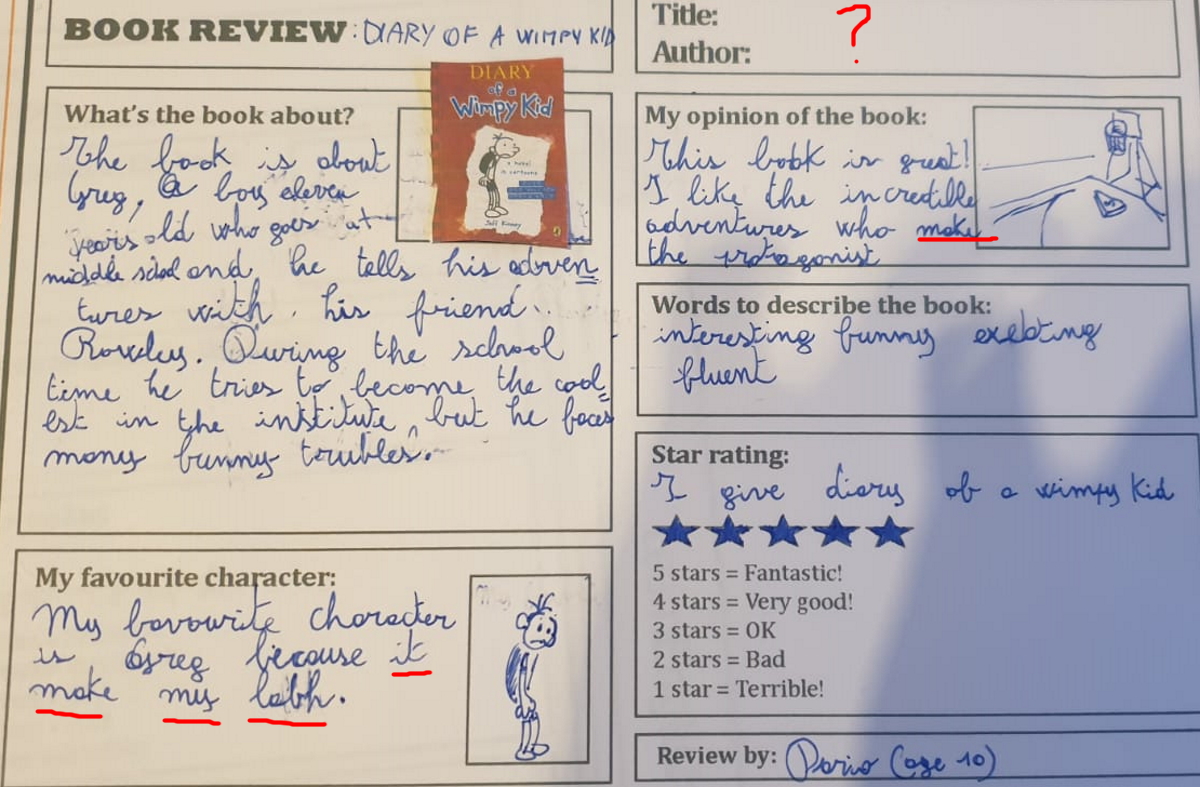 BOOK REVIEW: DIARY OF A WIMPY KID
DIARY
of a
Wimpy Kid
a novel
in cartoons
Jeff Kinney
What's the book about?
The book is about
Greg, a boy eleven
years old who goes at
middle school and he tells his adven
tures with his friend
Rowley. During the school
time he tries to become the cool
est in the institute, but he faces
many funny troubles.
My favourite character:
My favourite character
is Greg because it
make my labh.
Title: ?
Author:
My opinion of the book:
This book is great!
I like the incredible
adventures who make
the protagonist
Words to describe the book:
interesting funny
fluent
Star rating:
I give diary of a wimpy Kid
5 stars = Fantastic!
4 stars = Very good!
3 stars = OK
2 stars = Bad
1 star = Terrible!
Review by: Dario (age 10)